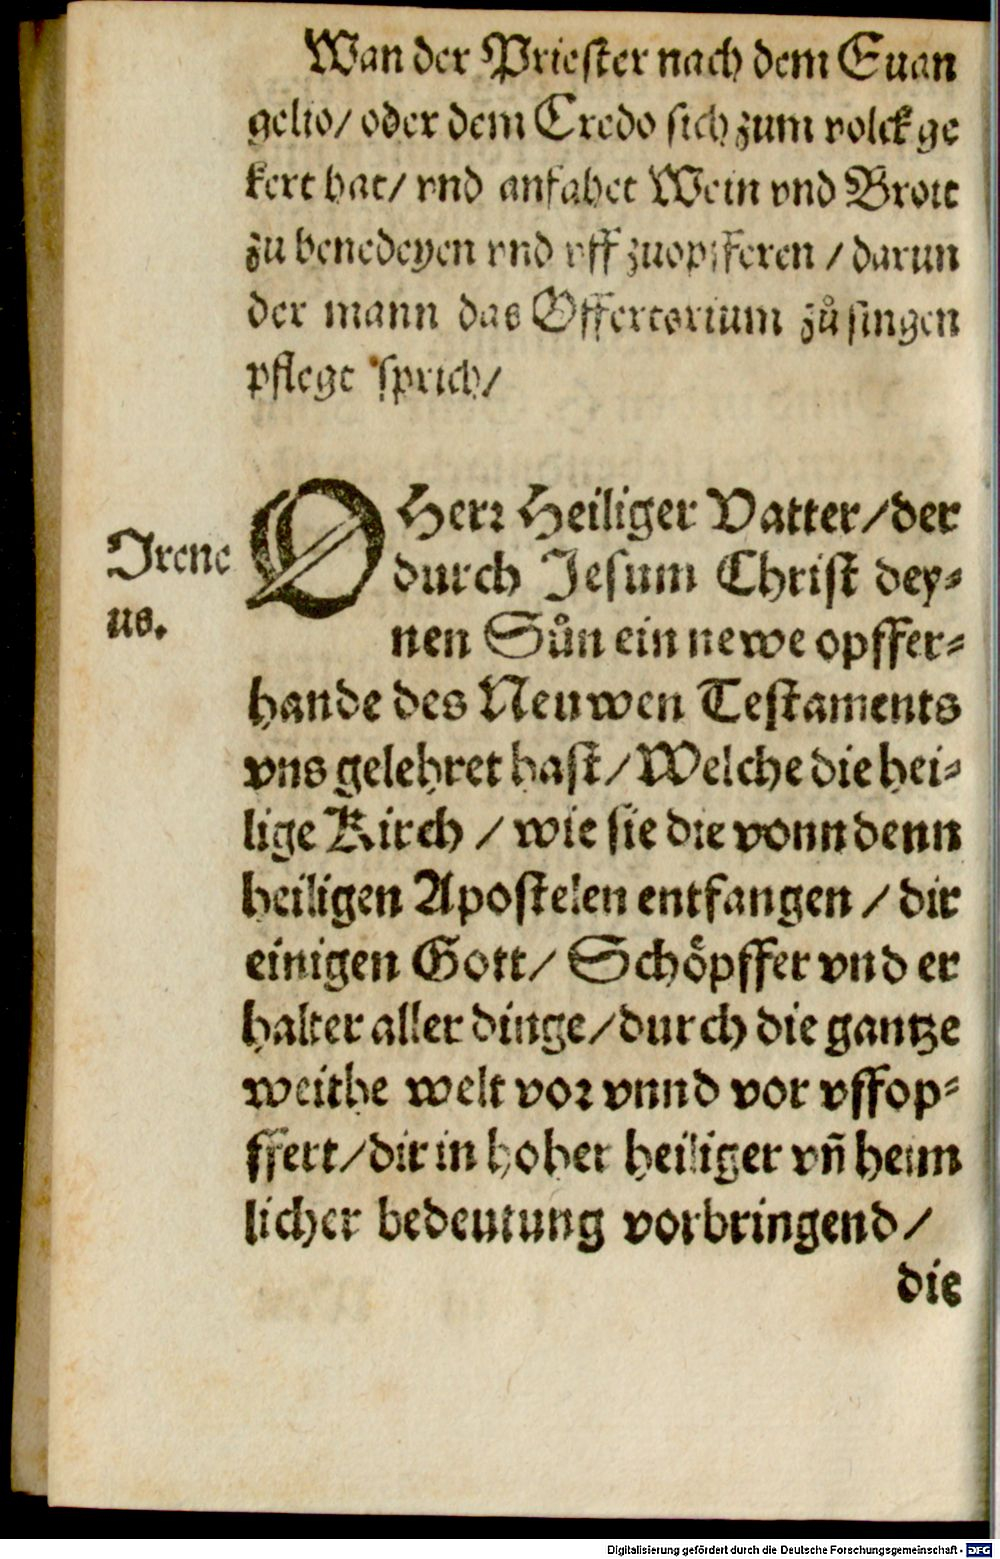 Wan der Priester nach dem Euan
gelio/ oder dem Credo sich zum volck ge
kert hat/ vnd anfahet Wein vnd Brott
zu benedeyen vnd vff zuopfferen / darun
der mann das Offertorium zů singen
pflege sprich/
O Herr Heiliger Vatter/der
Irene
durch Jesum Christ dey⸗
us.
nen Sůn ein newe opffer⸗
hande des Neuwen Testaments
vns gelehret hast/Welche die hei⸗
lige Kirch / wie sie die vonn denn
heiligen Apostelen entfangen / dir
einigen Gott/ Schöpffer vnd er
halter aller dinge/durch die gantze
weithe welt vor vnnd vor vffop⸗
ffert/dir in hoher heiliger vñ heim
licher bedeutung vorbringend/
die
Digitalisierung gefördert durch die Deutsche Forschungsgemeinschaft - DFG